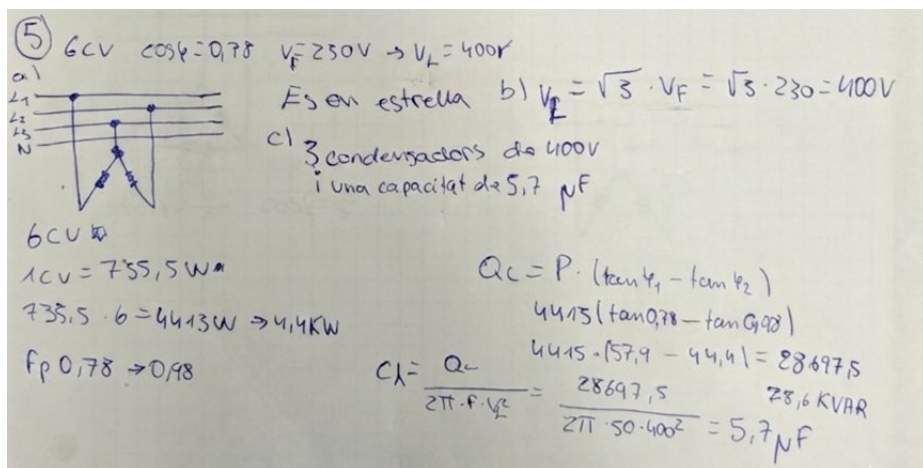 5 6CV cosφ=0,78 VF=230V → VL=400V
a)
L1
L2
L3
N
Es en estrella
b) VL = √3 · VF = √3 · 230 = 400V
c) 3 condensadors de 400V
i una capacitat de 5,7 μF
6CV
1CV = 735,5W
735,5 · 6 = 4413W → 4,4KW
Fp 0,78 → 0,98
Qc = P · (tan φ1 - tan φ2)
4415(tan0,78 - tan0,98)
4415 · (57,9 - 44,4) = 28697,5
28,6 KVAR
Cλ = Qc / 2π·F·VL² = 28697,5 / 2π·50·400² = 5,7μF